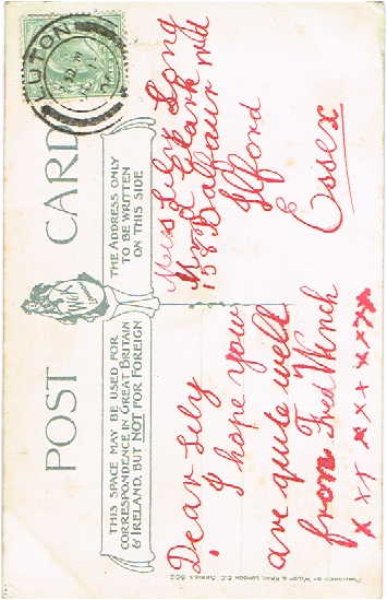 LUTON
POST CARD
THIS SPACE MAY BE USED FOR
CORRESPONDENCE IN GREAT BRITAIN
& IRELAND, BUT NOT FOR FOREIGN
THE ADDRESS ONLY
TO BE WRITTEN
ON THIS SIDE
Dear Lily
I hope you
are quite well
from Fred Winch
x x x x x x x x x
Miss Lily Long
Mrs Clark
158 Balfour Rd
Ilford
Essex
LONDON E.C. SERIES